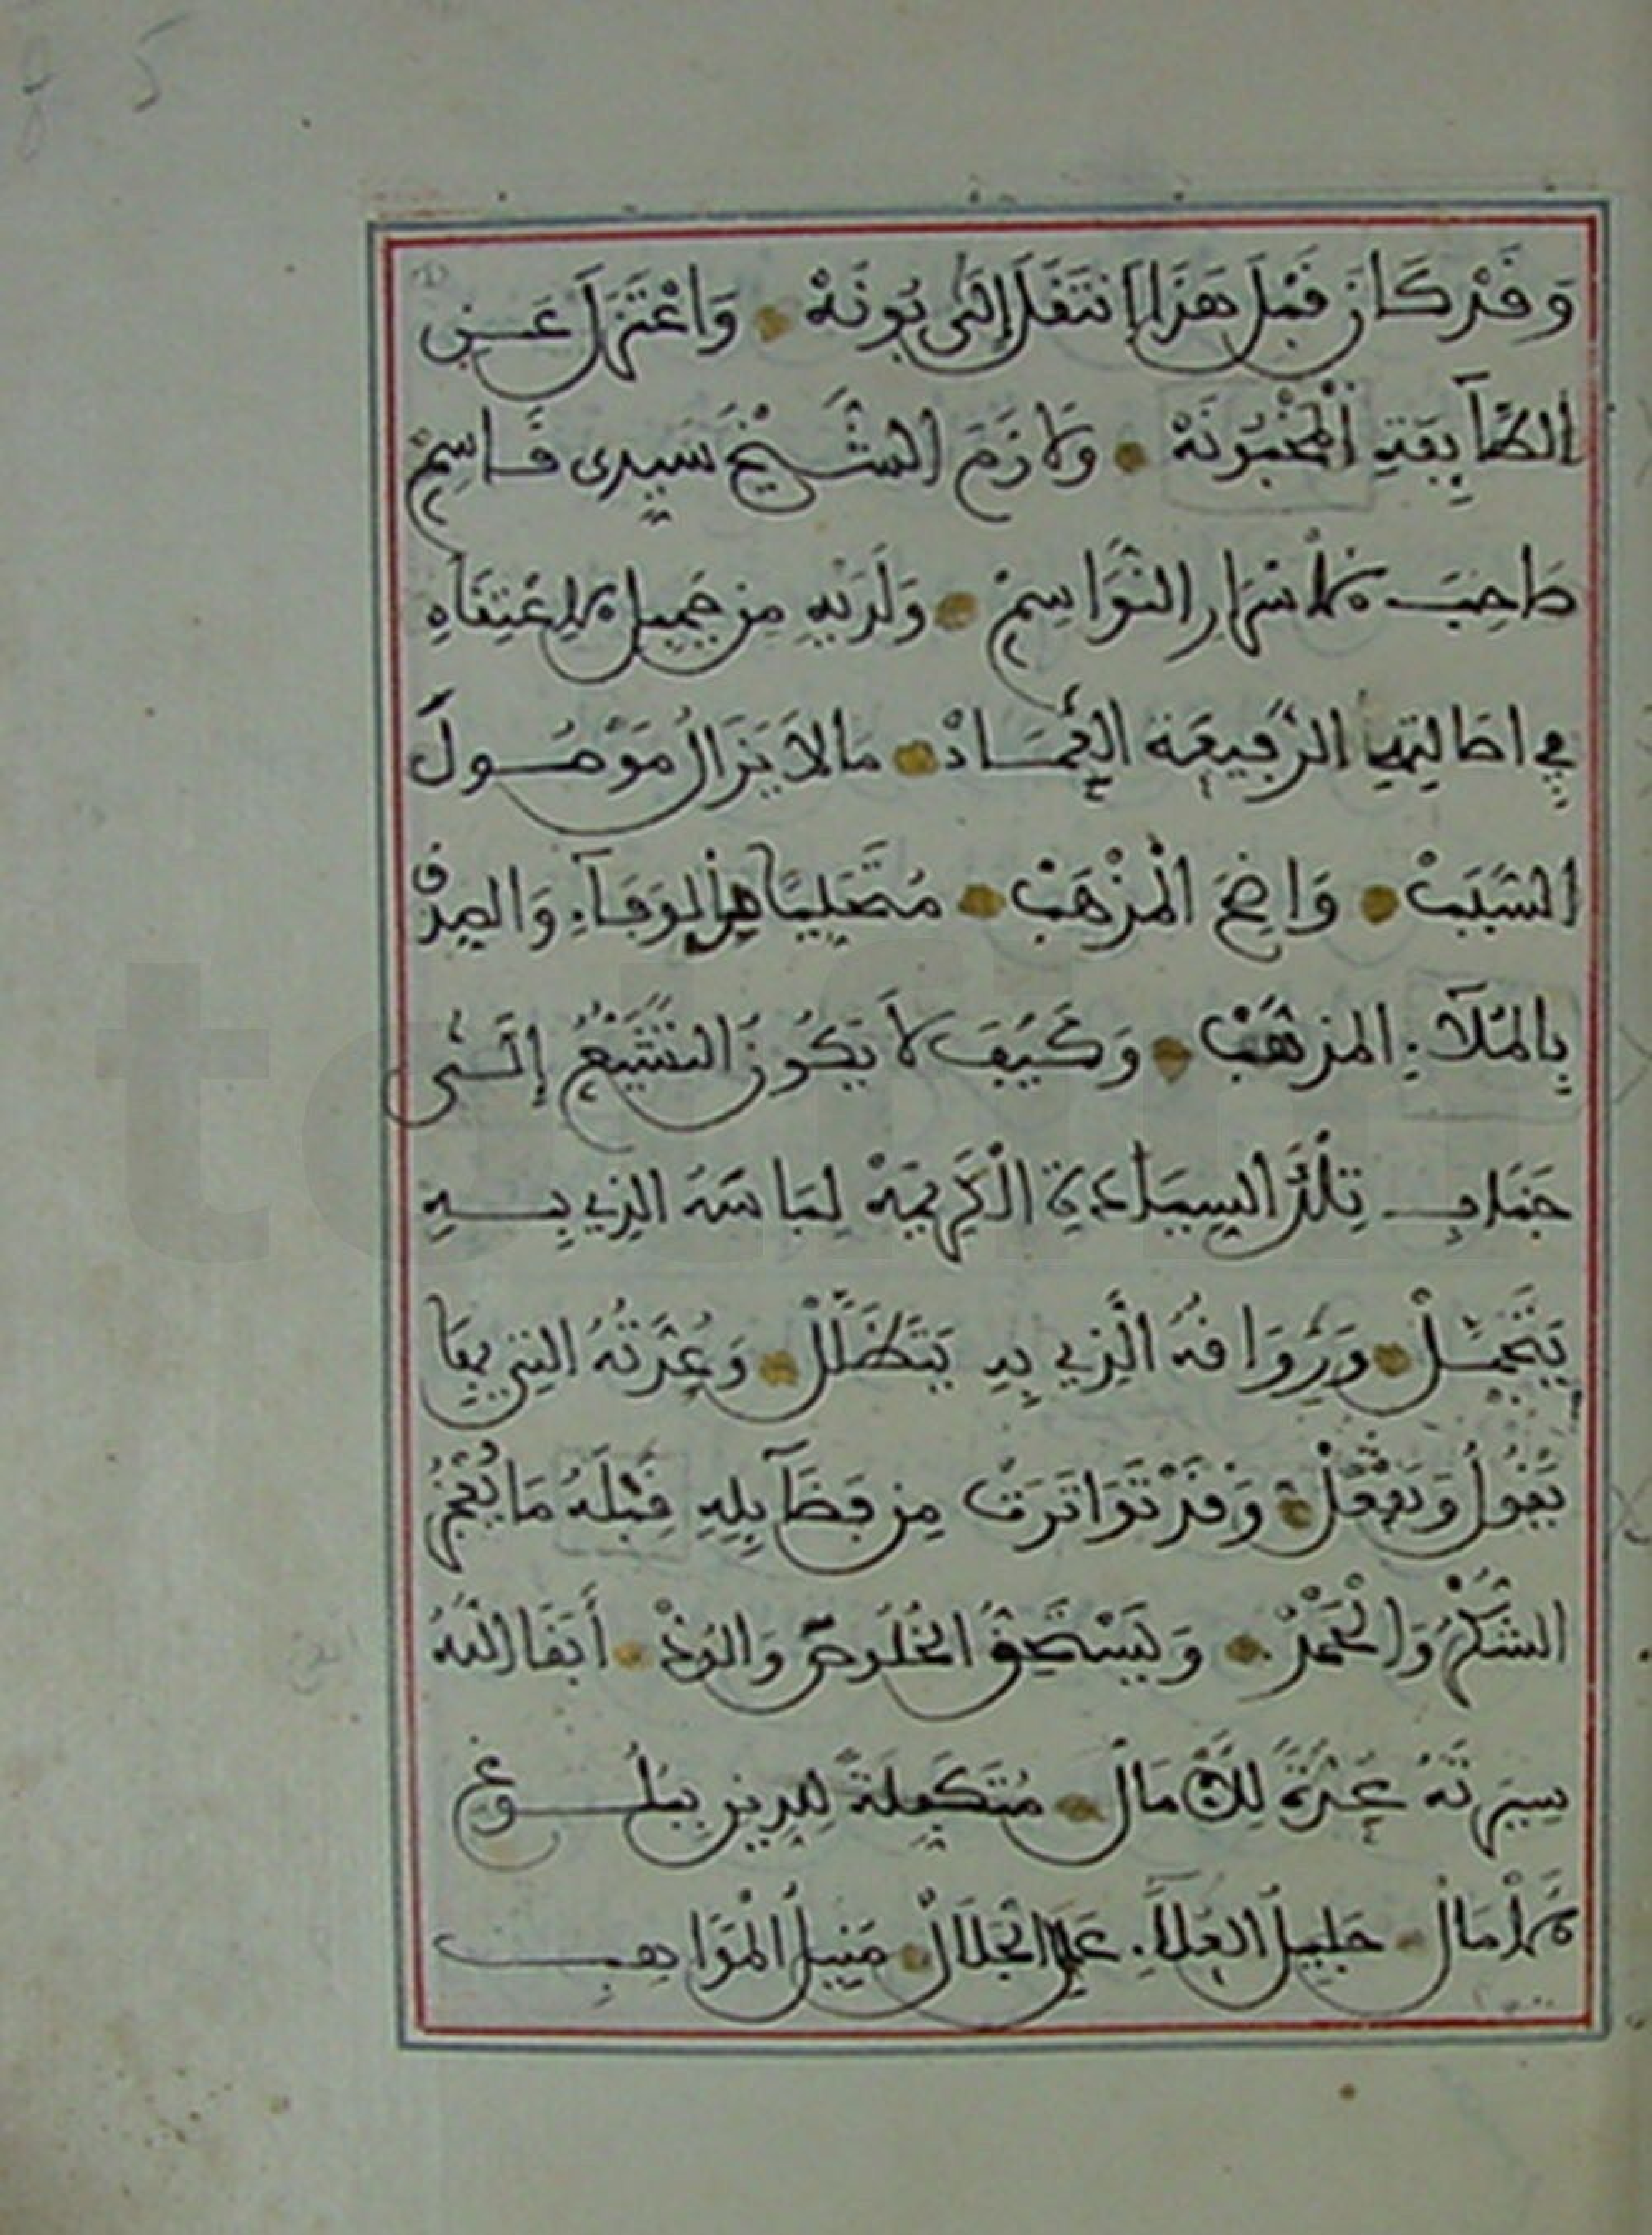 وَقَدْ كَانَ قَبْلَ هَذَا اِنتَقَلَ إِلَى بُونَهْ وَاعْتَزَلَ عَنِ
الطَّآيِفَةِ الْمَغْبُونَهْ وَلَازَمَ الشَّيْخَ سَيِدِى قَاسِمْ
صَاحِبَ الاسْرَارِ النَّوَاسِمْ وَلَدَيْهِ مِن جَمِيلِ الاِعْتِقَادِ
فِي اصَالَتِهِ الرَّفِيعَة الْعِمَادْ مَا لَا يَزَالُ مَوْصُولَ
السَّبَبْ وَاضِحَ الْمَذْهَبْ مِنَ الْوَفَآءِ وَالصِّدْقِ
بِالْمُلَآءِ الْمُذْهَبْ وَكَيْفَ لَا يَكُونُ التَّشَيُّعُ إِلَى
جَنَابِ تِلْكَ السِّيَادَةِ الْكَرِيمَهْ لِبَاسَهُ الذِي بِهِ
يَتَجَمَّلْ وَرِوَاقَهُ الَّذِي بِهِ يَتَظَلَّلْ وَعُدَّتُهُ التِي بِهَا
يَقُولُ وَيَفْعَلْ وَقَدْ تَوَاتَرَتْ مِن فَضَآيِلِهِ قِبْلَهُ مَا يُعْجِزُ
الشُّكْرَ وَالْحَمْدْ وَيَسْتَحِقُّ الْخُلُوصَ وَالْوُدّْ أَبْقَا اللَّهُ
سِيرَتَهُ غُرَّةً لِلْكَمَالْ مُتَكَفِّلَةً لِلدِّينِ بِبُلُوغِ
الامَالْ جَلِيلَ الْعَلَآءِ عَلِيَّ الْجَلَالْ مُنِيلَ الْمَوَاهِبِ